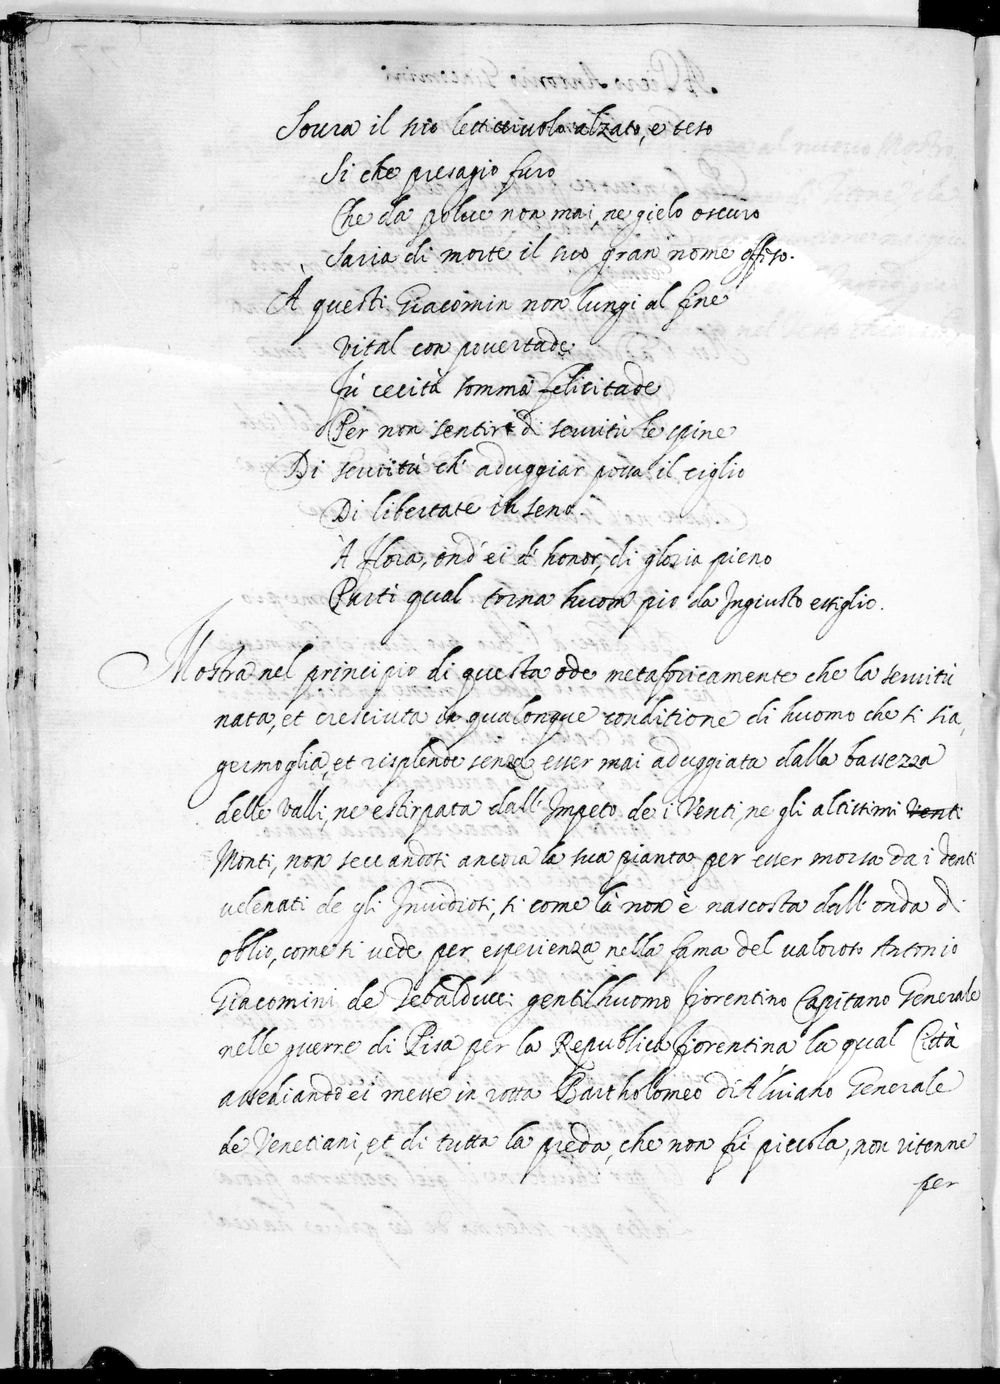 Soura il suo letticciuolo alzato, e teso
Si che presagio furo
Che da polue non mai, ne gielo oscuro
Saria di morte il suo gran nome offeso.
A questi Giacomin non lungi al fine
Vital con pouertade
Fù cecità somma felicitade
Per non sentire di seruitù le spine
Di seruitù ch' aduggiar possa il ciglio
Di libertate in seno
A Flora, ond' ei d' honor, di gloria pieno
Partì qual torna huom pio da Ingiusto essiglio.
Mostra nel principio di questa ode metaforicamente che la seruitù
nata, et cresciuta in qualongue conditione di huomo che si sia,
germoglia, et risplende senza esser mai aduggiata dalla bassezza
delle valli, ne estirpata dall' Impeto de i Venti, ne gli altissimi Venti
Monti, non seccandosi ancora la sua pianta per esser morsa da i denti
uelenati de gli Inuidiosi, si come là non è nascosta dall' onda d'
oblio, come si uede per esperienza nella fama del ualoroso Antonio
Giacomini de Tebalducci gentil'huomo fiorentino Capitano Generale
nelle guerre di Pisa per la Republica fiorentina la qual Città
assediando ei messe in rotta Bartholomeo di Aluiano Generale
de Venetiani, et di tutta la preda, che non fù piccola, non ritenne
per